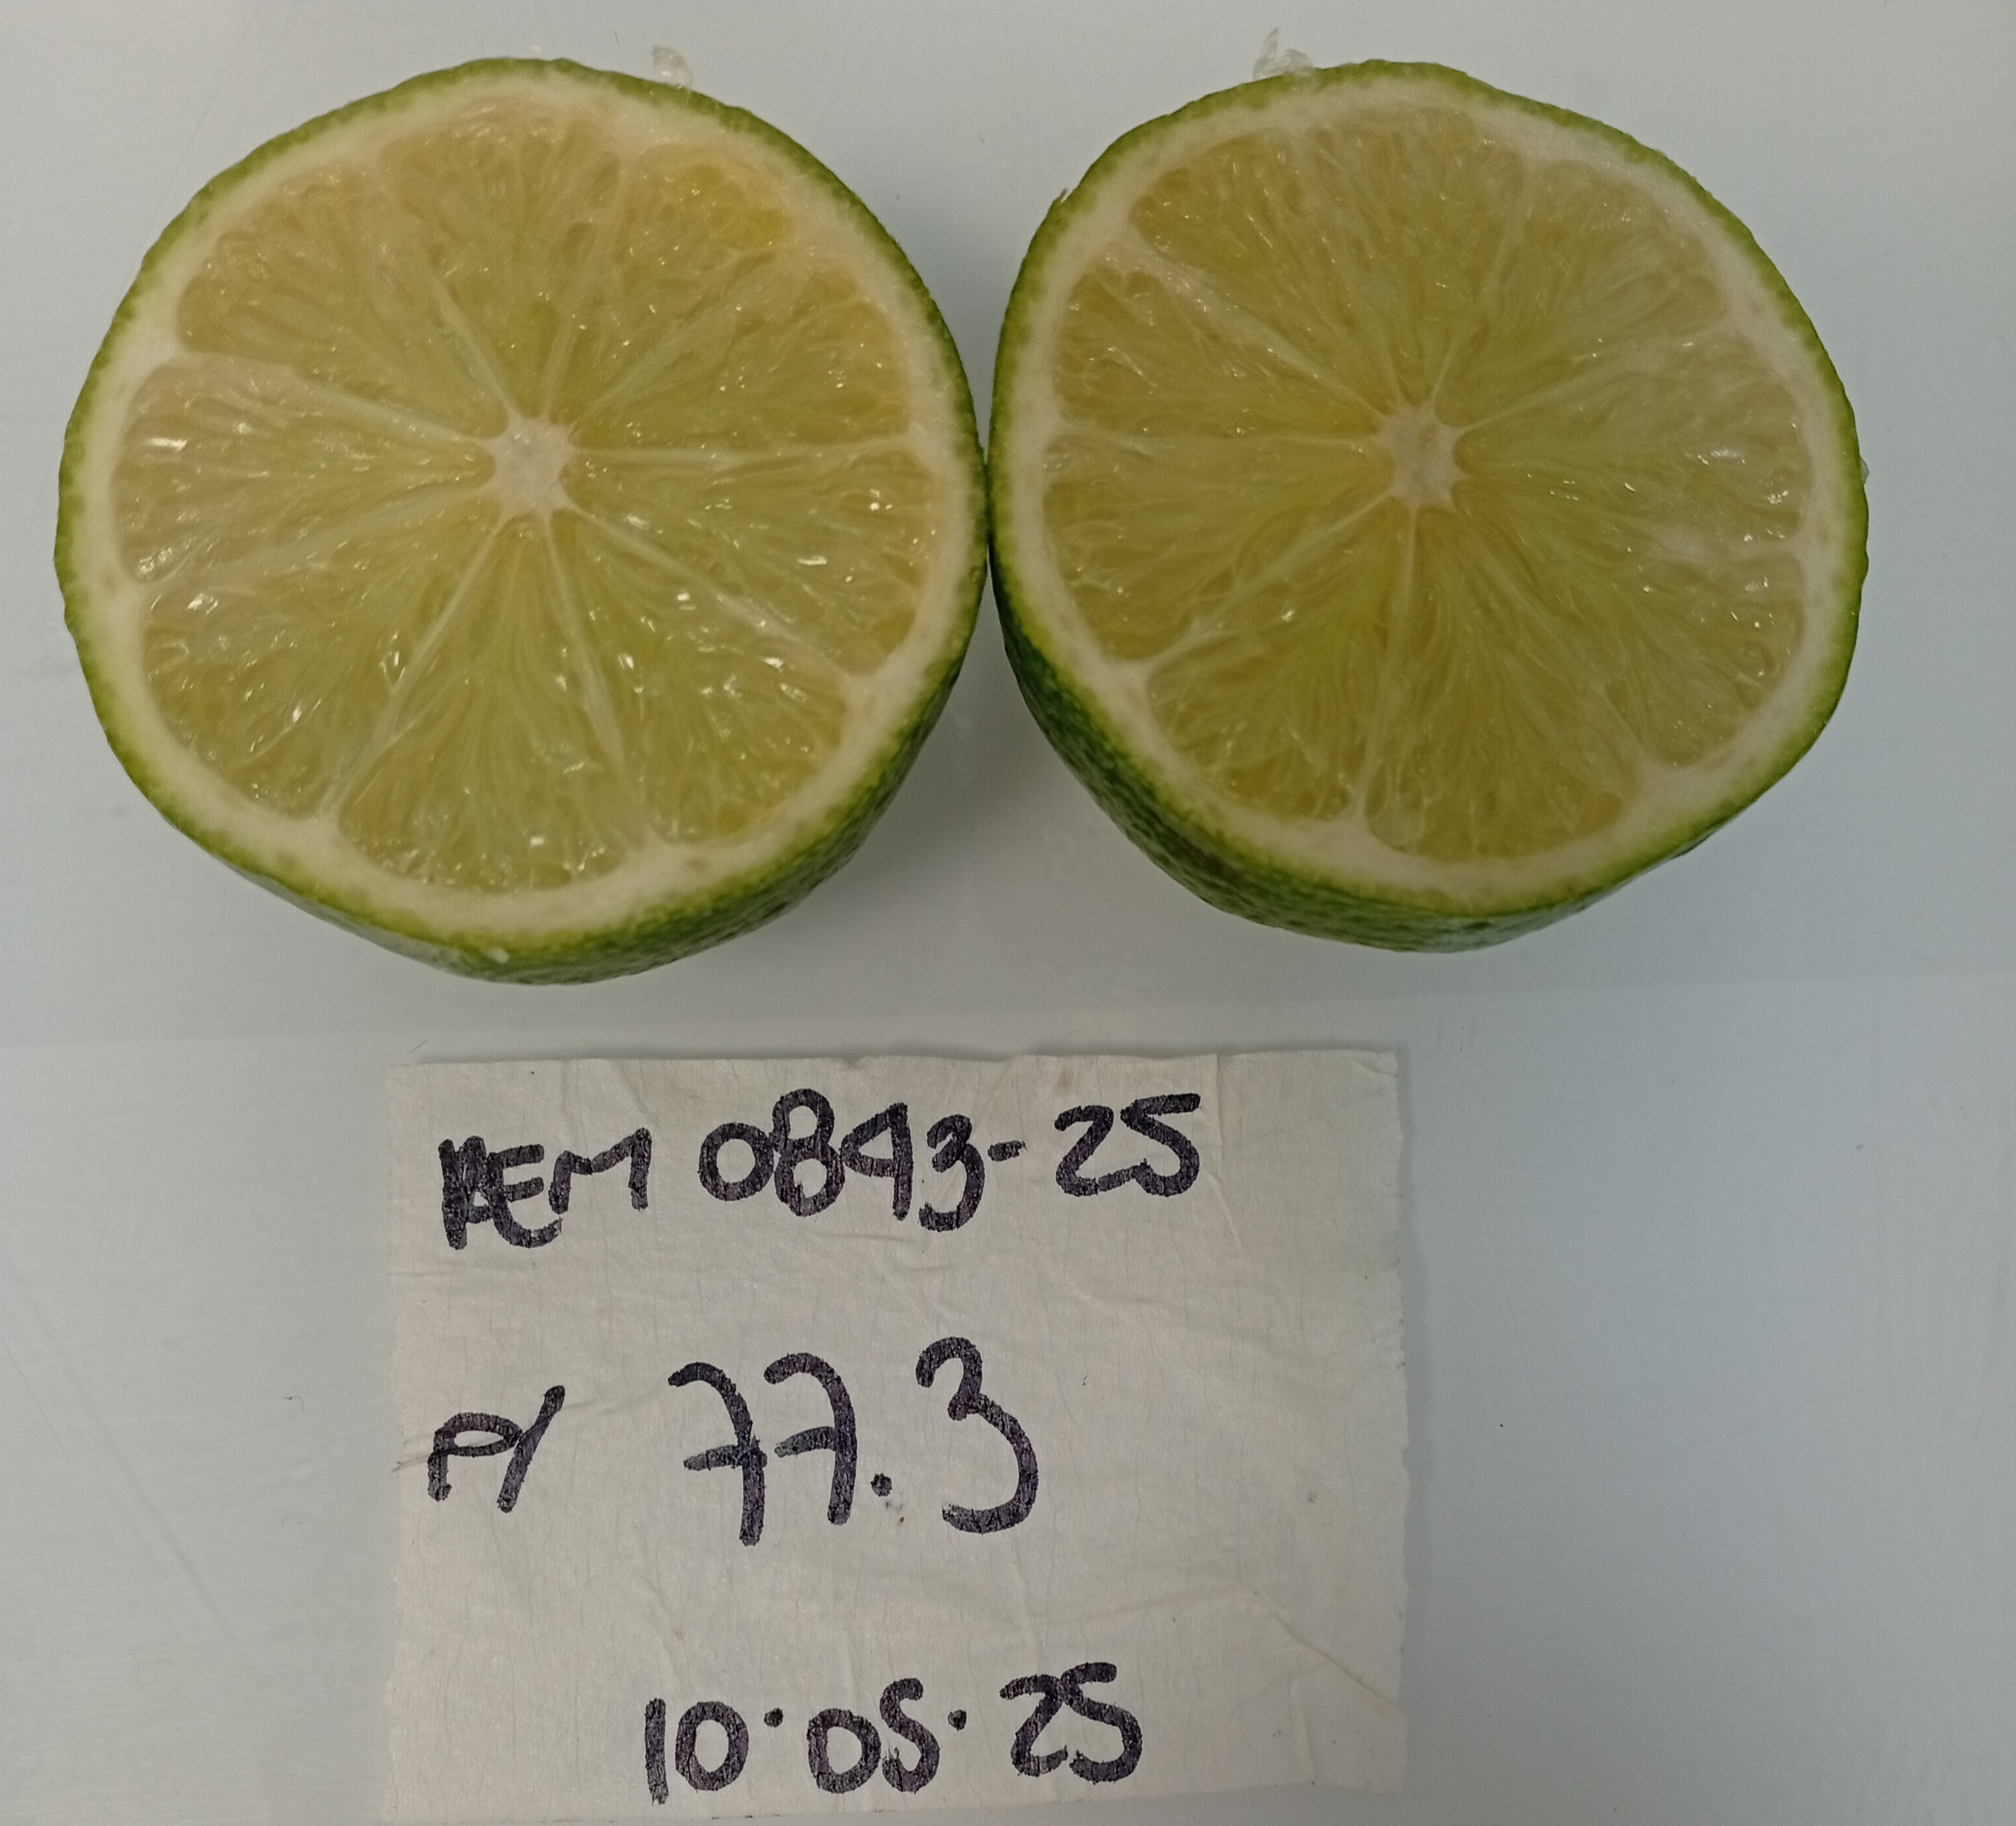 REM 0843-25
P/ 77.3
10.05.25